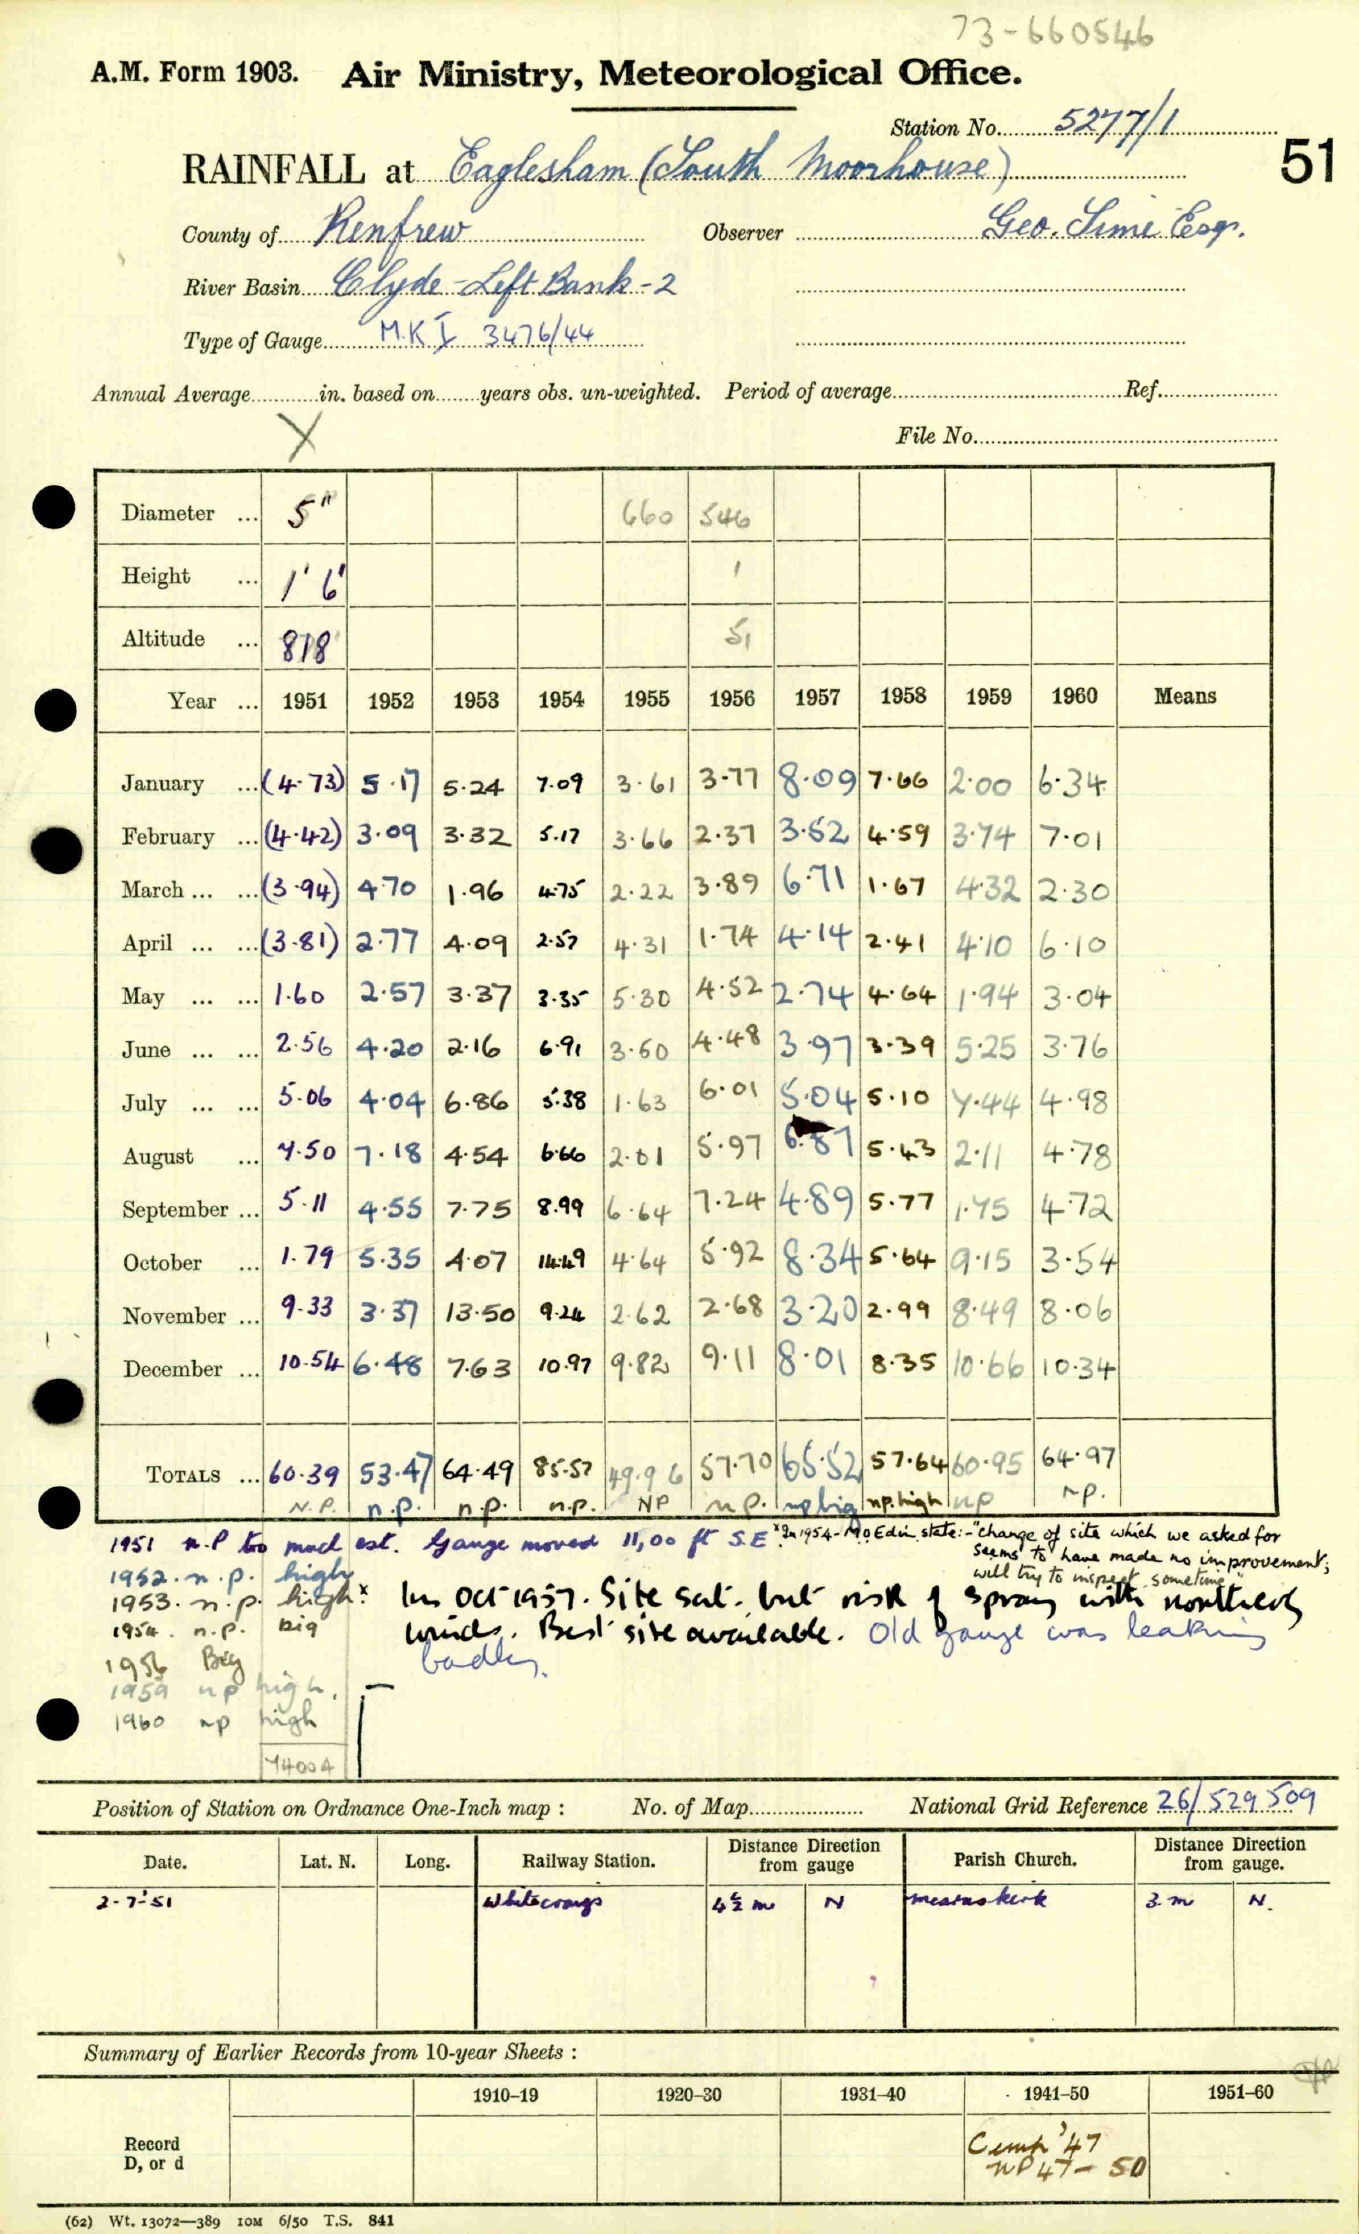 73-660546
A.M. Form 1903. Air Ministry, Meteorological Office.
Station No. 5277/1
51
RAINFALL at Eaglesham (South Moorhouse)
County of Renfrew Observer Geo. Sime Esqr.
River Basin Clyde-Left Bank-2
Type of Gauge M.K I 3476/44
Annual Average in. based on years obs. un-weighted. Period of average Ref.
X
File No.
Diameter ... 5" 660 546
Height ... 1' 6' 1
Altitude ... 818 51
Year ... 1951 1952 1953 1954 1955 1956 1957 1958 1959 1960 Means
January ... (4.73) 5.17 5.24 7.09 3.61 3.77 8.09 7.66 2.00 6.34
February ... (4.42) 3.09 3.32 5.17 3.66 2.37 3.52 4.59 3.74 7.01
March ... ... (3.94) 4.70 1.96 4.75 2.22 3.89 6.71 1.67 4.32 2.30
April ... ... (3.81) 2.77 4.09 2.57 4.31 1.74 4.14 2.41 4.10 6.10
May ... ... 1.60 2.57 3.37 3.35 5.30 4.52 2.74 4.64 1.94 3.04
June ... ... 2.56 4.20 2.16 6.91 3.50 4.48 3.97 3.39 5.25 3.76
July ... ... 5.06 4.04 6.86 5.38 1.63 6.01 5.04 5.10 7.44 4.98
August ... 7.50 7.18 4.54 6.66 2.01 5.97 6.87 5.43 2.11 4.78
September ... 5.11 4.55 7.75 8.99 6.64 7.24 4.89 5.77 1.75 4.72
October ... 1.79 5.35 4.07 14.49 4.64 5.92 8.34 5.64 9.15 3.54
November ... 9.33 3.37 13.50 9.24 2.62 2.68 3.20 2.99 8.49 8.06
December ... 10.54 6.48 7.63 10.97 9.82 9.11 8.01 8.35 10.66 10.34
TOTALS ... 60.39 53.47 64.49 85.57 49.96 57.70 65.52 57.64 60.95 64.97
N.P. n.p. n.p. n.p. NP n.p. np big np.high np np.
1951 n.P too much est. Gauge moved 11,00 ft S.E. x In 1954 - M.O. Edin. state:- "change of site which we asked for
seems to have made no improvement;
will try to inspect sometime"
1952. n.p. high
1953. n.p. high x In Oct 1957. Site sat. but risk of spray with northerly
1954. n.p. big winds. Best site available. Old gauge was leaking
1956 Big badly.
1959 np high.
1960 np high
7400A
Position of Station on Ordnance One-Inch map : No. of Map National Grid Reference 26/529509
Date. Lat. N. Long. Railway Station. Distance from gauge Direction Parish Church. Distance from gauge. Direction
2-7-51 Whitecraigs 4½ m N Mearnskirk 3 m N.
Summary of Earlier Records from 10-year Sheets :
1910–19 1920–30 1931–40 1941–50 1951–60
Record
D, or d
Comp '47
NP 47 - 50
(62) Wt. 13072—389 10M 6/50 T.S. 841